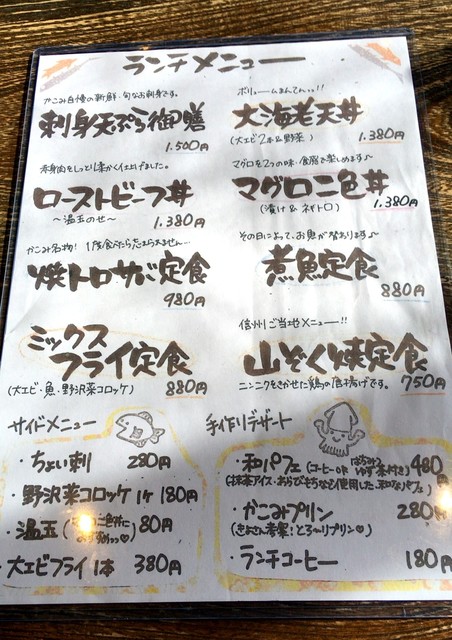 ランチメニュー
かこみ自慢の新鮮・旬なお刺身です。
刺身天ぷら御膳
1.500円
ボリュームまんてん。。!!
大海老天丼
(大エビ2本&野菜)
1.380円
赤身肉をしっとり柔かく仕上げました。
ローストビーフ丼
〜温玉のせ〜
1.380円
マグロを2つの味・食感で楽しめます♪
マグロ二色丼
(漬け&ネギトロ)
1.380円
かこみ名物! 1度食べたら忘れられません…
焼トロサバ定食
980円
その日によって、お魚が替わります♪
煮魚定食
880円
ミックス
フライ定食
(大エビ・魚・野沢菜コロッケ)
880円
信州ご当地メニュー!!
山ぞく焼定食
ニンニクをきかせた鶏の唐揚げです。
750円
サイドメニュー
・ちょい刺 280円
・野沢菜コロッケ 1ヶ 180円
・温玉
80円
・大エビフライ 1本 380円
手作りデザート
・和パフェ (コーヒーor はちみつゆず茶付き) 480円
(抹茶アイス・わらびもちなど使用した、和なパフェ)
・かこみプリン 280円
(きよさん考案!とろ〜りプリン♡)
・ランチコーヒー 180円